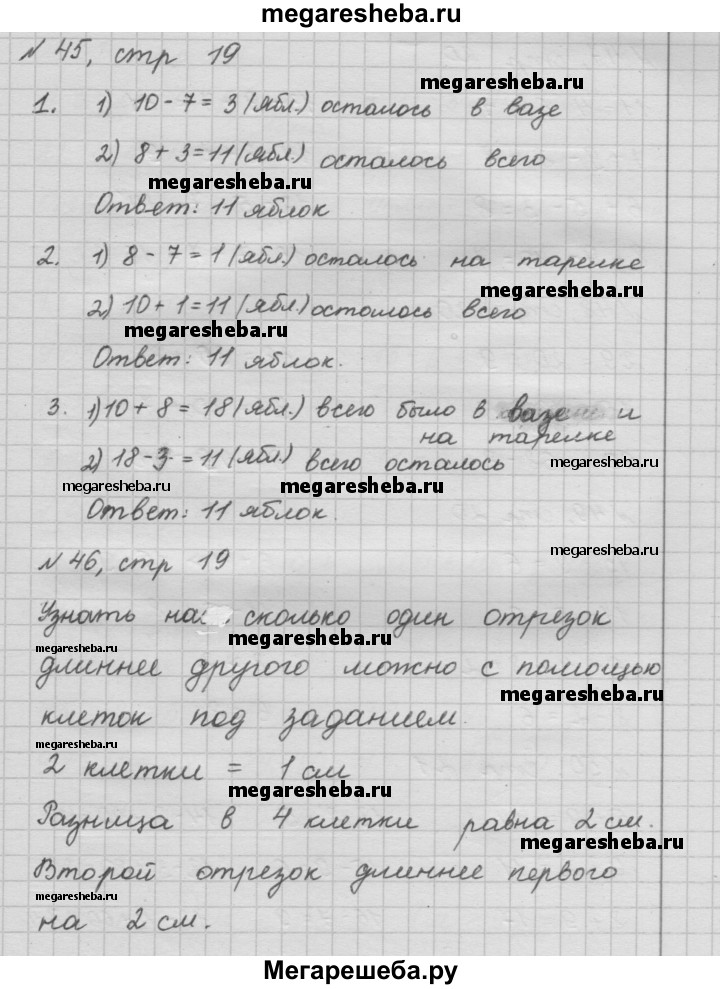 megaresheba.ru
№ 45, стр 19
megaresheba.ru
1. 1) 10 - 7 = 3 (ябл.) осталось в вазе
2) 8 + 3 = 11 (ябл.) осталось всего
megaresheba.ru
Ответ: 11 яблок
2. 1) 8 - 7 = 1 (ябл.) осталось на тарелке
megaresheba.ru
2) 10 + 1 = 11 (ябл.) осталось всего
megaresheba.ru
Ответ: 11 яблок.
3. 1) 10 + 8 = 18 (ябл.) всего было в вазе и
на тарелке
2) 18 - 3 = 11 (ябл.) всего осталось
megaresheba.ru
megaresheba.ru
megaresheba.ru
Ответ: 11 яблок.
№ 46, стр 19
megaresheba.ru
Узнать на сколько один отрезок
megaresheba.ru
megaresheba.ru
длиннее другого можно с помощью
megaresheba.ru
клеток под заданием.
megaresheba.ru
2 клетки = 1 см
megaresheba.ru
Разница в 4 клетки равна 2 см.
megaresheba.ru
Второй отрезок длиннее первого
megaresheba.ru
на 2 см.
Мегарешеба.ру